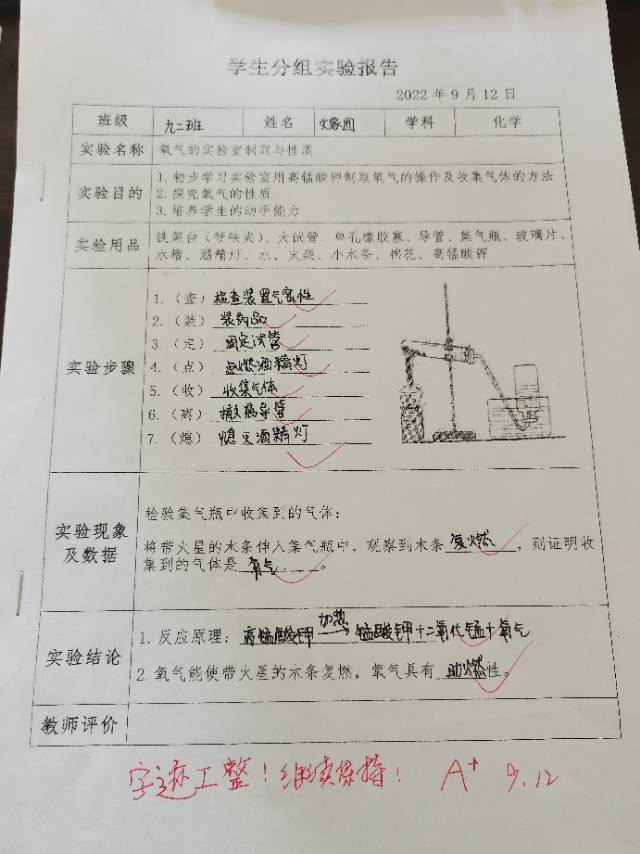 学生分组实验报告
2022 年 9 月 12 日
班级 九二班 姓名 学科 化学
实验名称 氧气的实验室制取与性质
实验目的
1. 初步学习实验室用高锰酸钾制取氧气的操作及收集气体的方法
2. 探究氧气的性质
3. 培养学生的动手能力
实验用品
铁架台（带铁夹）、大试管、单孔橡胶塞、导管、集气瓶、玻璃片、
水槽、酒精灯、水、火柴、小木条、棉花、高锰酸钾
实验步骤
1. （查） 检查装置气密性
2. （装） 装药品
3 （定） 固定试管
4. （点） 点燃酒精灯
5. （收） 收集气体
6. （离） 撤离导管
7. （熄） 熄灭酒精灯
实验现象及数据
检验集气瓶中收集到的气体：
将带火星的木条伸入集气瓶中，观察到木条 复燃 ，则证明收
集到的气体是 氧气 。
实验结论
1. 反应原理：高锰酸钾 加热→ 锰酸钾＋二氧化锰＋氧气
2. 氧气能使带火星的木条复燃，氧气具有 助燃 性。
教师评价
字迹工整！继续保持！ A+ 9.12